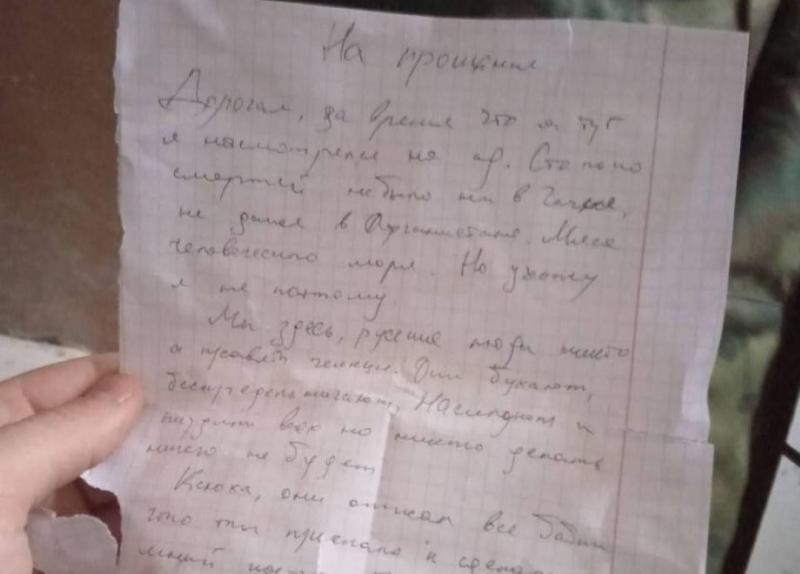 На прощание
Дорогая, за время что я тут
я насмотрелся на ад. Столько
смертей не было ни в Чечне,
не даже в Афганистане. Мяса
человеческого море. Но ухожу
я не поэтому.
Мы здесь, русские люди никто
а правят чеченцы. Они бухают,
беспредельничают, насилуют и
пиздят всех но никто делать
ничего не будет
Ксюха, они всё
что ты прислала и